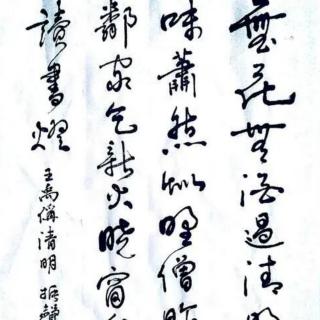 無花無酒過清明
味蕭然似野僧昨
鄰家乞新火曉窗分
讀書燈
王禹偁清明